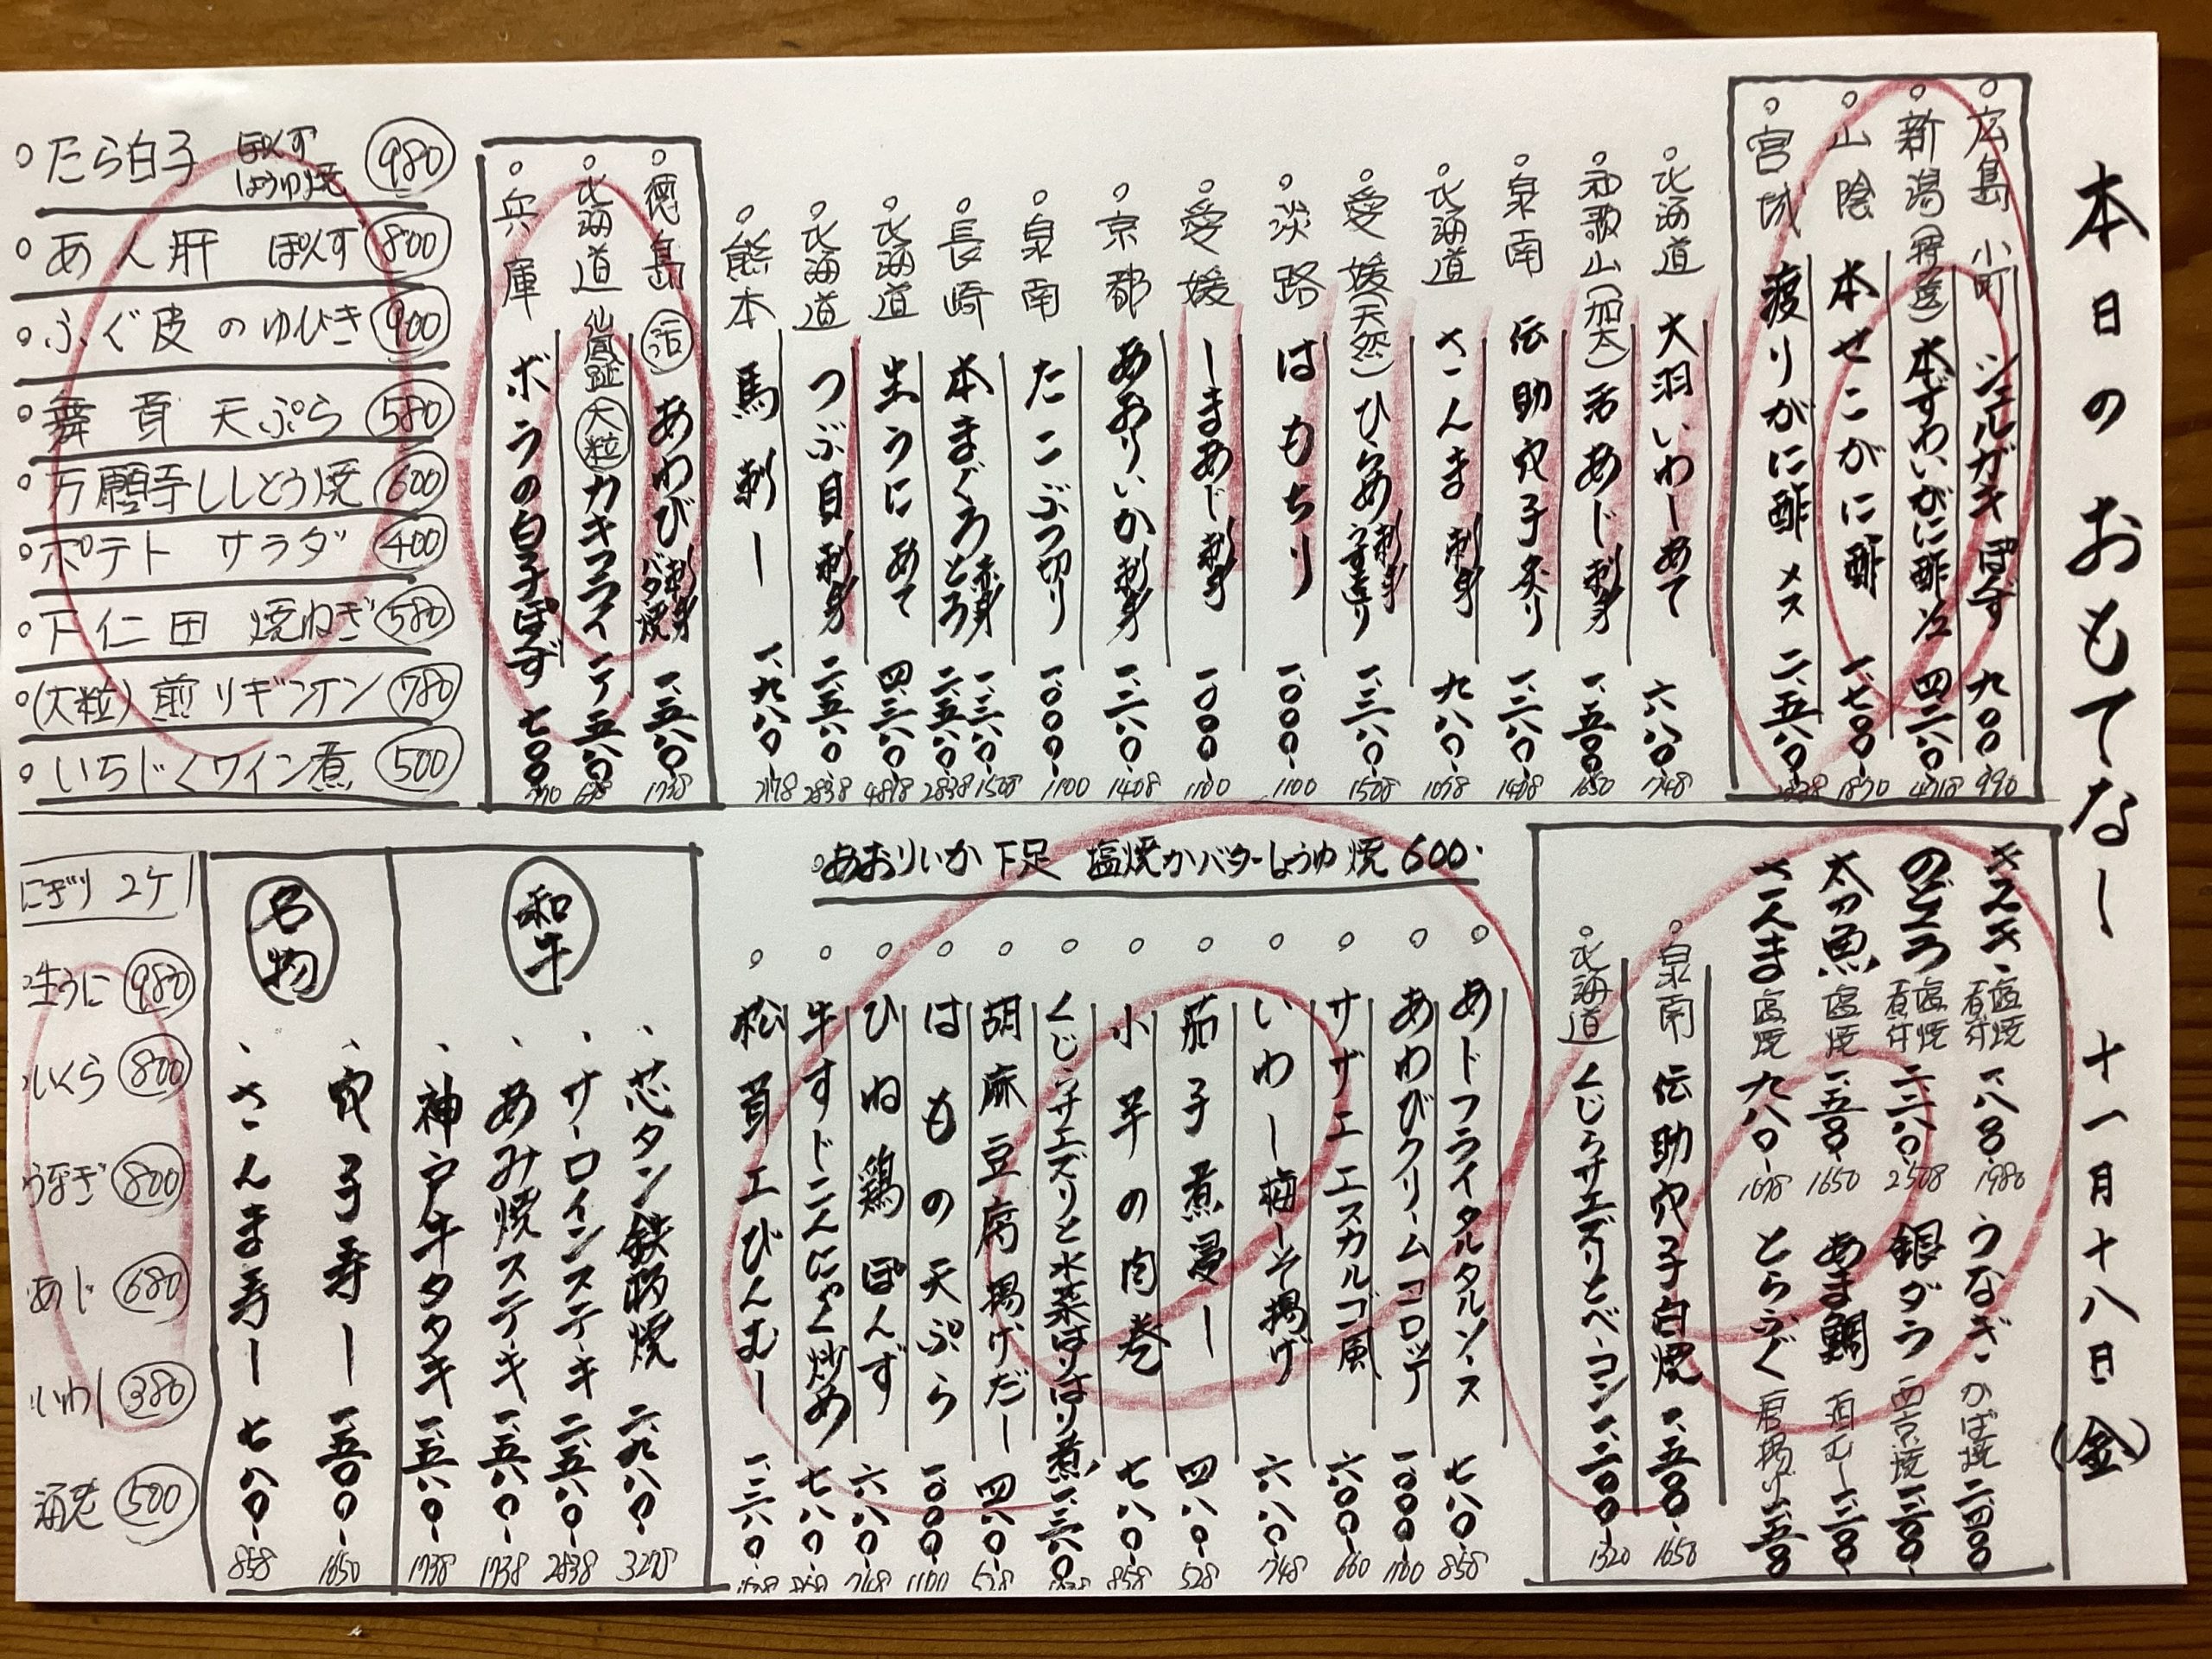 本日のおもてなし 十一月十八日(金)
広島 小町 シェルガキ ぽんず 九〇〇 990
新潟(特選)本ずわいがに酢 1/2 四、三八〇
山陰 本せこがに酢 一、七〇〇 1870
宮城 渡りがに酢 メス 二、五八〇 2838
北海道 大羽いわしあて 六八〇 748
和歌山(加太)活あじ 刺身 一、五〇〇 1650
泉南 伝助穴子炙り 一、二八〇 1408
北海道 さんま 刺身 九八〇 1078
愛媛(天然)ひらめ 刺身 うす造り 一、三八〇 1508
淡路 はもちり 一、〇〇〇 1100
愛媛 しまあじ 刺身 一、〇〇〇 1100
京都 あおりいか 刺身 一、二八〇 1408
泉南 たこぶつ切り 一、〇〇〇 1100
長崎 本まぐろ 赤身 一、三八〇 1508 とろ 二、五八〇 2838
北海道 生うにあて 四、三八〇 4818
北海道 つぶ貝 刺身 二、五八〇 2838
熊本 馬刺し 一、九八〇 2178
徳島 活 あわび 刺身 バタ焼 一、五八〇 1738
北海道 仙鳳趾 大粒 カキフライ 一ケ 五八〇
兵庫 ボラの白子ぽんず 七〇〇 770
たら白子 ぽんず しょうゆ焼 980
あん肝 ぽんず 800
ふぐ皮のゆびき 900
舞茸 天ぷら 580
万願寺ししとう焼 600
ポテト サラダ 400
下仁田 焼ねぎ 580
(大粒)煎りギンナン 780
いちじくワイン煮 500
キスキ 塩焼 煮付 一、八〇〇 1980
のどぐろ 塩焼 煮付 二、二八〇 2508
太刀魚 塩焼 一、五〇〇 1650
さんま 塩焼 九八〇 1078
うなぎ かば焼 二、四〇〇
銀ダラ 西京焼 一、三〇〇
あま鯛 酒むし 一、三〇〇
とらふぐ 唐揚げ 一、五〇〇
泉南 伝助穴子白焼 一、五〇〇 1650
北海道 くじらサエズリとベーコン 一、二〇〇 1320
あおりいか下足 塩焼かバターしょうゆ焼 600
あじフライタルタルソース 七八〇 858
あわびクリームコロッケ 一、〇〇〇 1100
サザエ エスカルゴ風 六〇〇 660
いわし梅しそ揚げ 六八〇 748
茄子煮浸し 四八〇 528
小芋の肉巻 七八〇 858
くじらサエズリと水菜はりはり煮 一、三八〇
胡麻豆腐揚げだし 四八〇 528
はもの天ぷら 一、〇〇〇 1100
ひね鶏ぽんず 六八〇 748
牛すじこんにゃく炒め 七八〇 858
松茸エびんむし 一、三八〇
和牛
芯タン鉄板焼 二、九八〇 3278
サーロインステーキ 二、五八〇 2838
あみ焼ステーキ 一、五八〇 1738
神戸牛タタキ 一、五八〇 1738
名物
穴子寿し 一、五〇〇 1650
さんま寿し 七八〇 858
にぎり 2ケ
生うに 980
いくら 800
うなぎ 800
あじ 680
いわし 380
海老 500